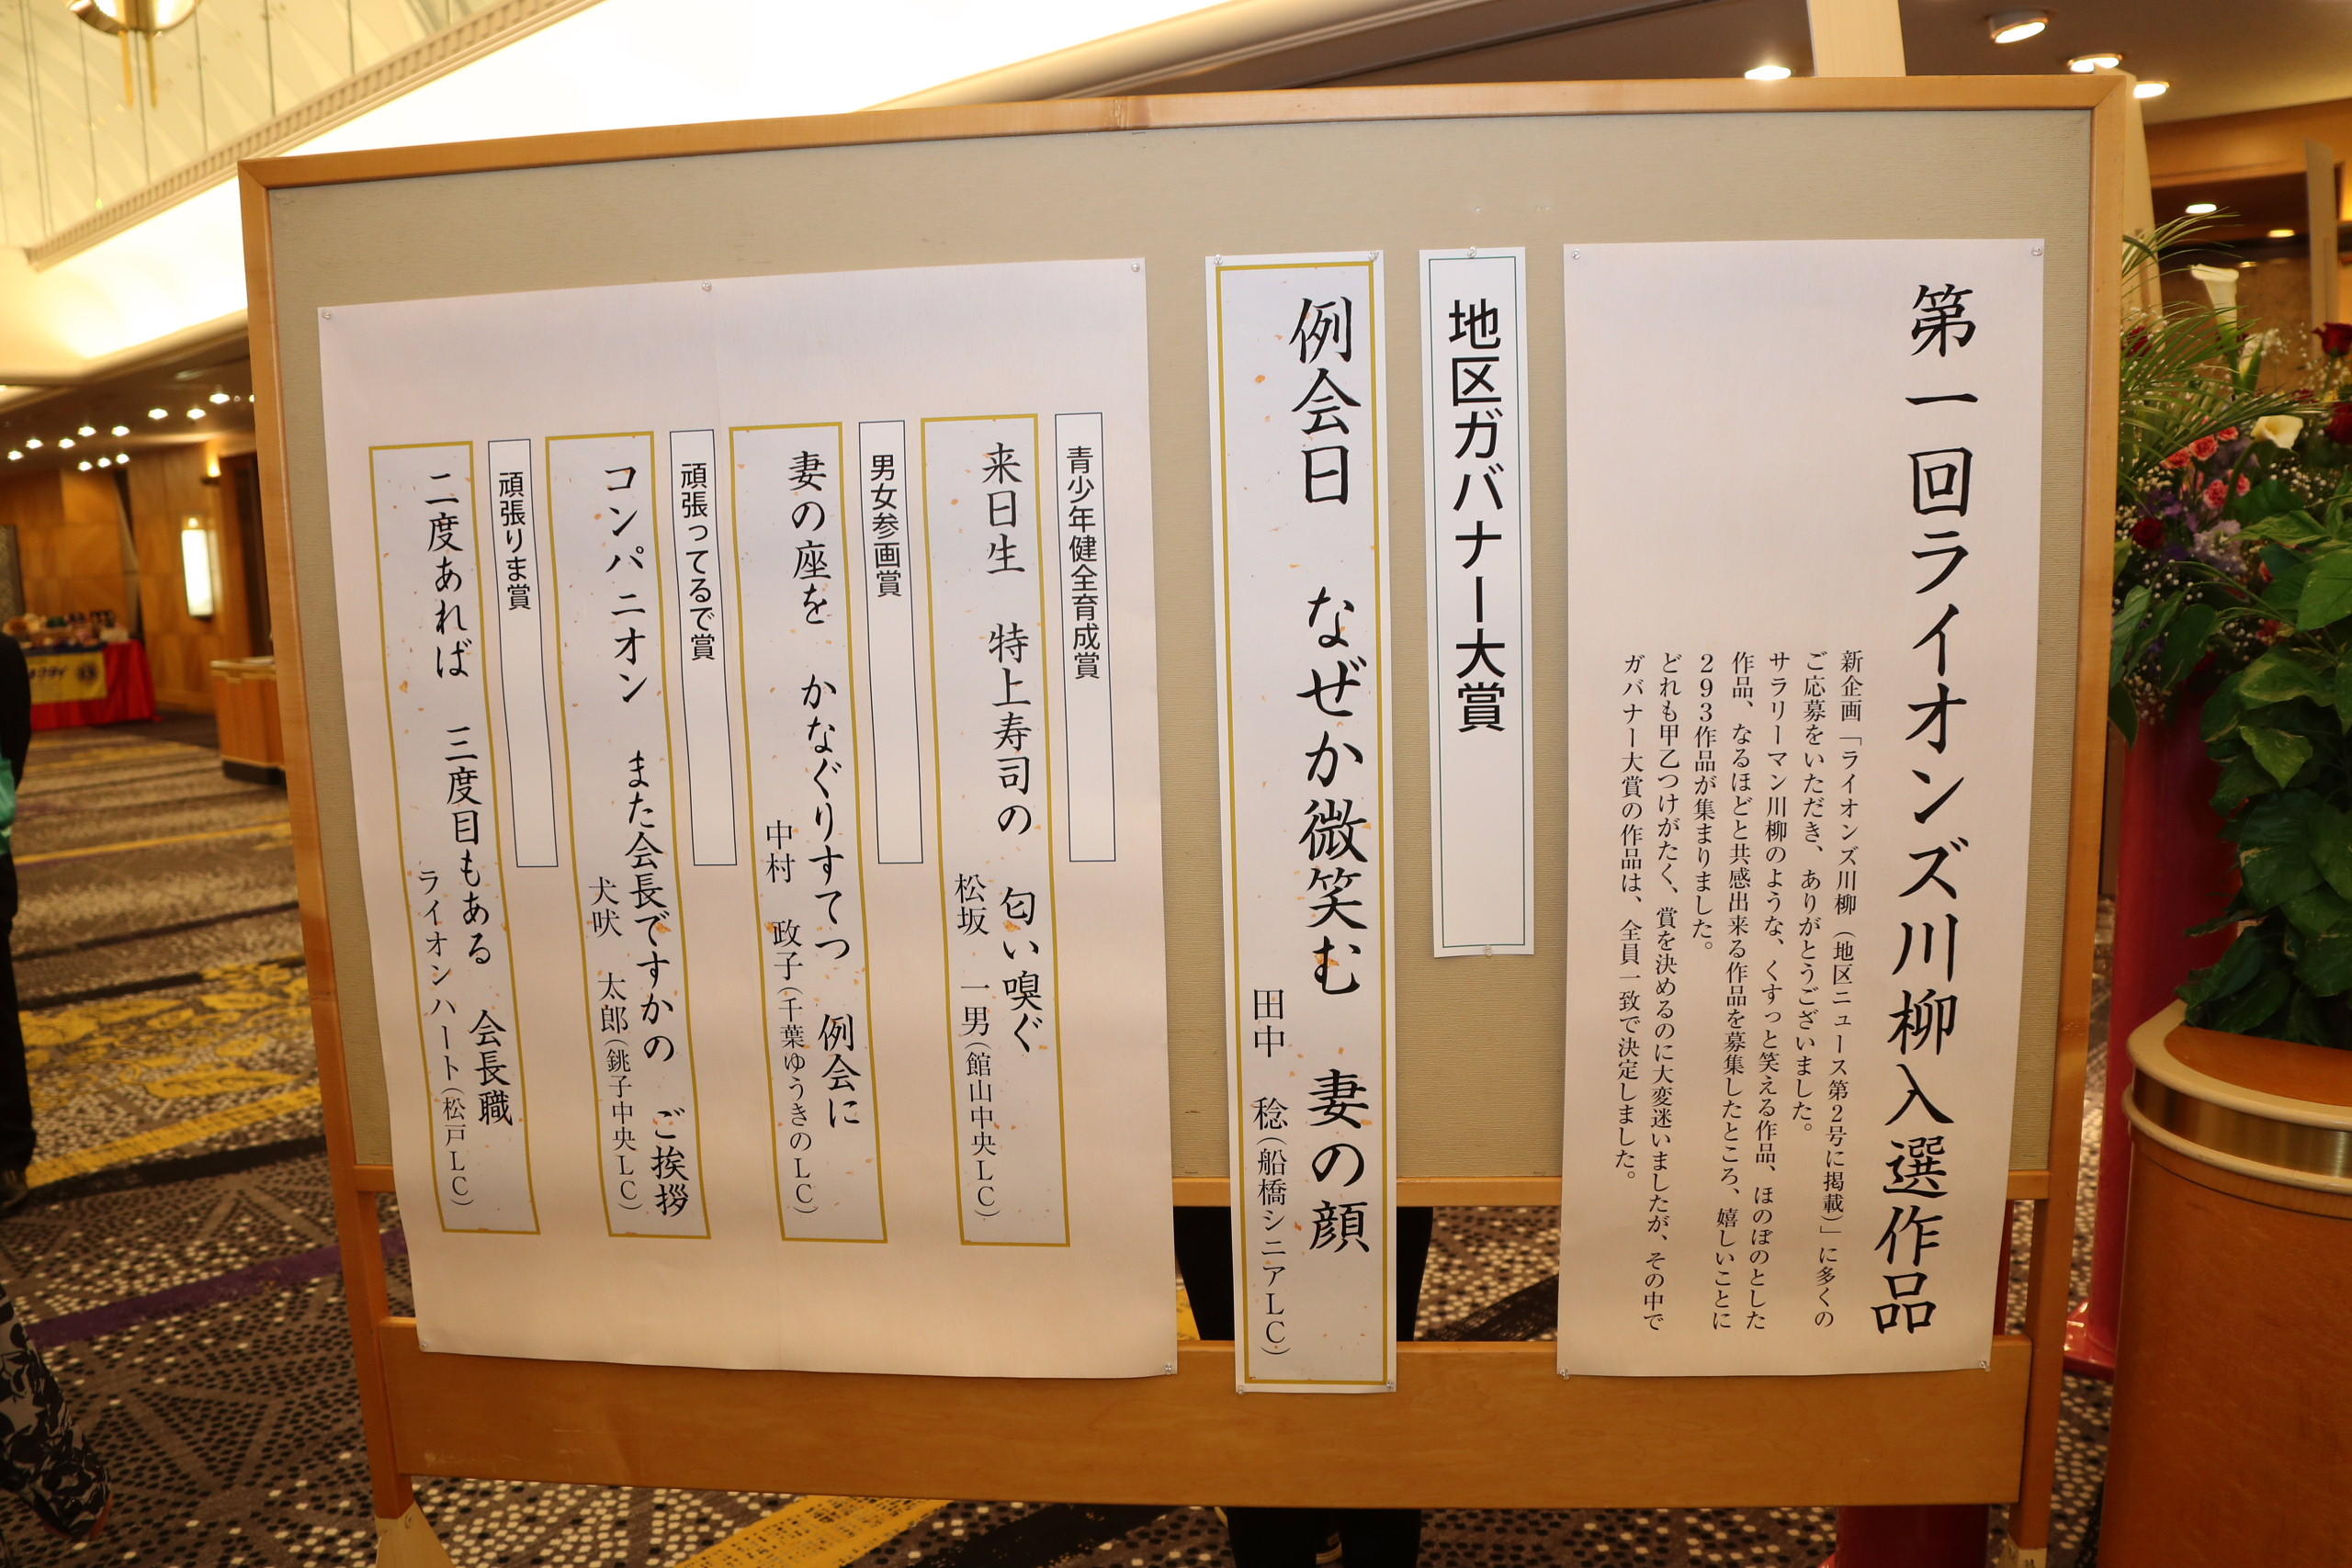 第一回ライオンズ川柳入選作品
新企画「ライオンズ川柳（地区ニュース第２号に掲載）」に多くの
ご応募をいただき、ありがとうございました。
サラリーマン川柳のような、くすっと笑える作品、ほのぼのとした
作品、なるほどと共感出来る作品を募集したところ、嬉しいことに
２９３作品が集まりました。
どれも甲乙つけがたく、賞を決めるのに大変迷いましたが、その中で
ガバナー大賞の作品は、全員一致で決定しました。
地区ガバナー大賞
例会日　なぜか微笑む　妻の顔
田中　稔（船橋シニアＬＣ）
青少年健全育成賞
来日生　特上寿司の　匂い嗅ぐ
松坂　一男（館山中央ＬＣ）
男女参画賞
妻の座を　かなぐりすてつ　例会に
中村　政子（千葉ゆうきのＬＣ）
頑張ってるで賞
コンパニオン　また会長ですかの　ご挨拶
犬吠　太郎（銚子中央ＬＣ）
頑張りま賞
二度あれば　三度目もある　会長職
ライオンハート（松戸ＬＣ）